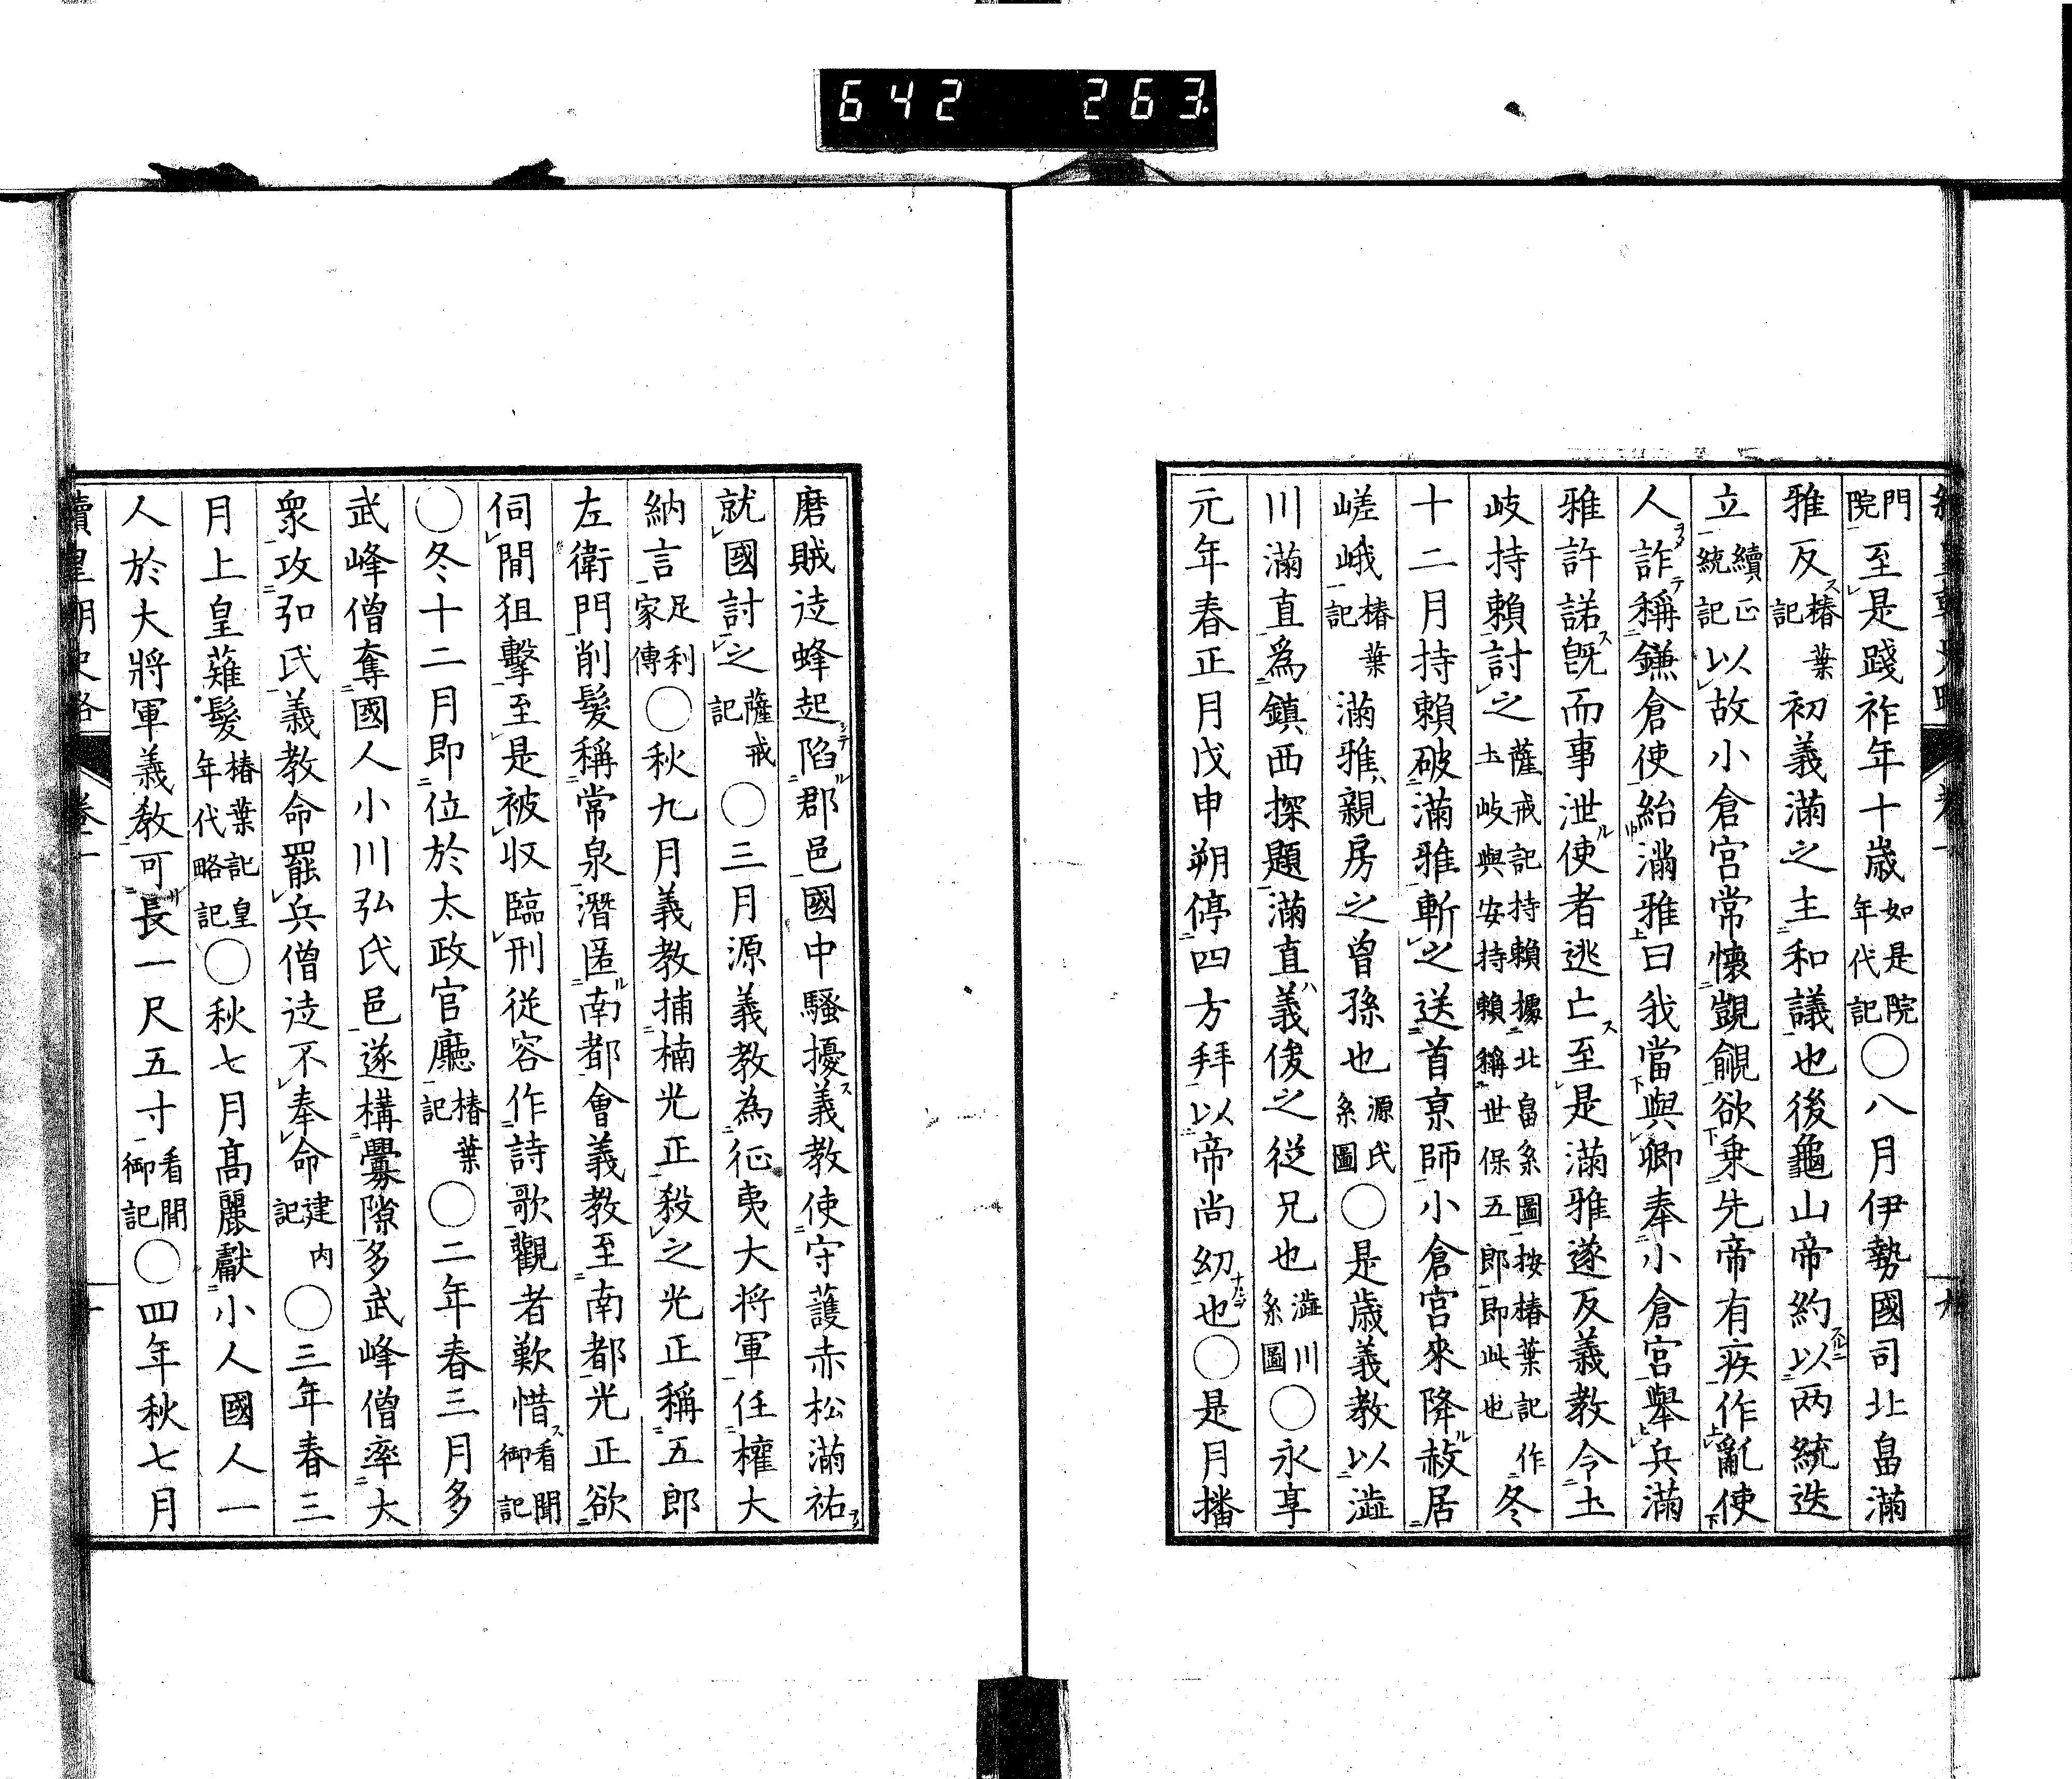 642 263
門院至是踐祚年十歳如是院年代記〇八月伊勢國司北畠滿
雅反椿葉記初義滿之主和議也後龜山帝約以兩統迭
立續正統記以故小倉宮常懷覬覦欲乘先帝有疾作亂使
人詐稱鎌倉使紿滿雅曰我當與卿奉小倉宮舉兵滿
雅許諾既而事泄使者逃亡至是滿雅遂反義教令土
岐持頼討之薩戒記持頼據北畠系圖按椿葉記作土岐與安持頼稱世保五郎即此也冬
十二月持頼破滿雅斬之送首京師小倉宮來降赦居
嵯峨椿葉記滿雅親房之曾孫也源氏系圖〇是歳義教以澁
川滿直為鎮西探題滿直義俊之從兄也澁川系圖〇永享
元年春正月戊申朔停四方拜以帝尚幼也〇是月播
磨賊徒蜂起陷郡邑國中騷擾義教使守護赤松滿祐
就國討之薩戒記〇三月源義教為征夷大将軍任權大
納言足利家傳〇秋九月義教捕楠光正殺之光正稱五郎
左衛門削髮稱常泉潛匿南都會義教至南都光正欲
伺間狙擊至是被収臨刑從容作詩歌觀者歎惜看聞御記
〇冬十二月即位於太政官廳椿葉記〇二年春三月多
武峰僧奪國人小川弘氏邑遂構釁隙多武峰僧率大
衆攻弘氏義教命罷兵僧徒不奉命建内記〇三年春三
月上皇薙髮椿葉記皇年代略記〇秋七月高麗獻小人國人一
人於大將軍義教可長一尺五寸看聞御記〇四年秋七月